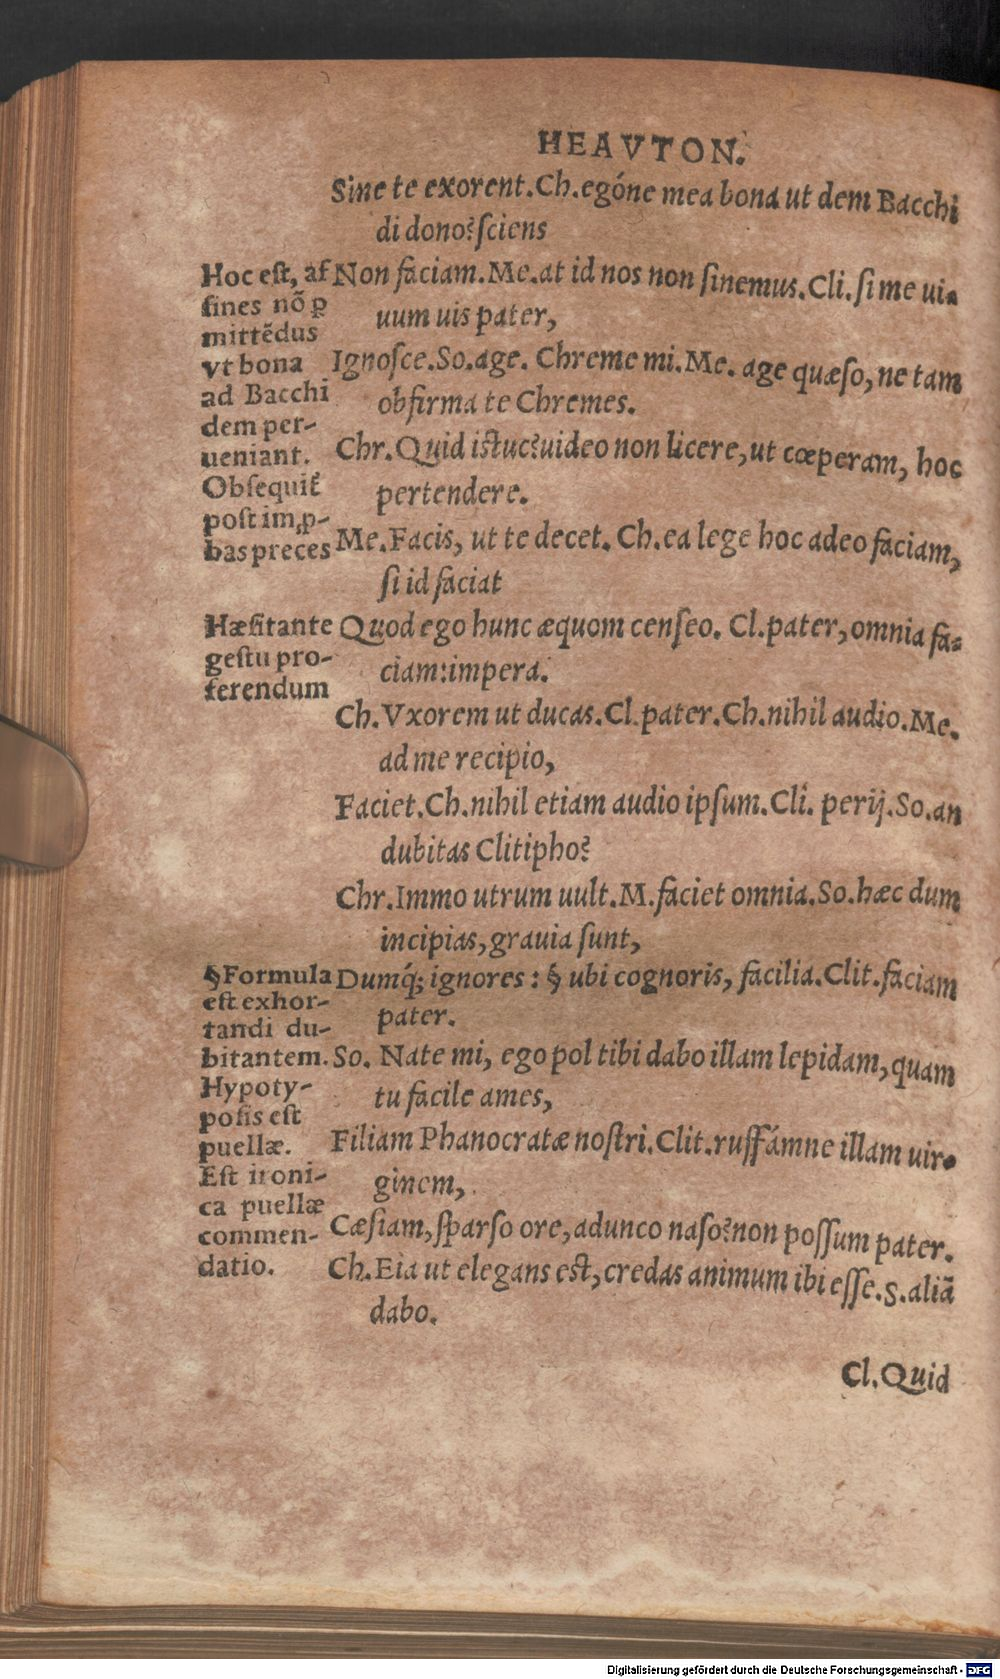 HEAVTON.
Sine te exorent.Ch.egóne mea bona ut dem Bacchi
di dono?sciens
Non faciam.Me.at id nos non sinemus.Cli.si me ui-
uum uis pater,
Ignosce.So.age. Chreme mi.Me. age quæso, ne tam
obfirma te Chremes.
Chr.Quid istuc?uideo non licere, ut cœperam, hoc
pertendere.
Me.Facis, ut te decet. Ch.ea lege hoc adeo faciam,
si id faciat
Quod ego hunc æquom censeo. Cl.pater, omnia fa-
ciam:impera.
Ch.Vxorem ut ducas.Cl.pater.Ch.nihil audio.Me.
ad me recipio,
Faciet.Ch.nihil etiam audio ipsum.Cli. perij.So.an
dubitas Clitipho?
Chr.Immo utrum uult.M.faciet omnia.So.hæc dum
incipias, grauia sunt,
Dumq́; ignores: § ubi cognoris, facilia.Clit.faciam
pater.
So. Nate mi, ego pol tibi dabo illam lepidam, quam
tu facile ames,
Filiam Phanocratæ nostri.Clit.ruffámne illam uir-
ginem,
Cæsiam, sparso ore, adunco naso?non possum pater.
Ch.Eia ut elegans est, credas animum ibi esse.S.aliā
dabo.
Hoc est, af
fines nõ ꝑ
mittẽdus
vt bona
ad Bacchi
dem per-
ueniant.
Obsequit̃
post imꝓ-
bas preces
Hæsitante
gestu pro-
ferendum
§Formula
est exhor-
tandi du-
bitantem.
Hypoty-
posis est
puellæ.
Est ironi-
ca puellæ
commen-
datio.
Cl.Quid
Digitalisierung gefördert durch die Deutsche Forschungsgemeinschaft - DFG